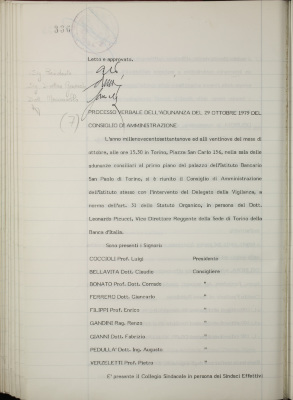 336
Letto e approvato.
PROCESSO VERBALE DELL'ADUNANZA DEL 29 OTTOBRE 1979 DEL
CONSIGLIO DI AMMINISTRAZIONE
L'anno millenovecentosettantanove ed alli ventinove del mese di
ottobre, alle ore 15,30 in Torino, Piazza San Carlo 156, nella sala delle
adunanze consiliari al primo piano del palazzo dell'Istituto Bancario
San Paolo di Torino, si è riunito il Consiglio di Amministrazione
dell'Istituto stesso con l'intervento del Delegato della Vigilanza, a
norma dell'art. 31 dello Statuto Organico, in persona del Dott.
Leonardo Vice Direttore Reggente della Sede di Torino della
Banca d'Italia.
Sono presenti i Signori:
COCCIOLI Prof. Luigi Presidente
BELLAVITA Dott. Claudio Consigliere
BONATO Prof. Dott. Corrado "
FERRERO Dott. Giancarlo "
FILIPPI Prof. Enrico "
GANDINI Rag. Renzo "
GIANNI Dott. Fabrizio "
PEDULLA' Dott. Ing. Augusto "
VERZELETTI Prof. Pietro "
E' presente il Collegio Sindacale in persona dei Sindaci Effettivi